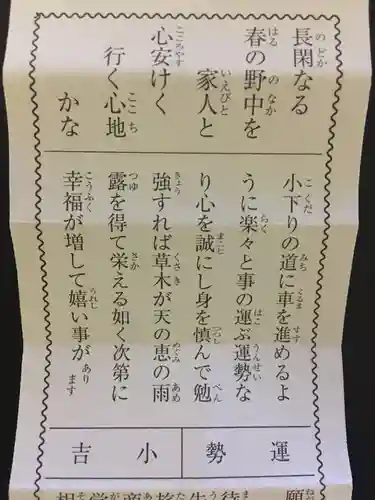 長閑なる
春の野中を
家人と
心安けく
行く心地
かな
小下りの道に車を進めるよ
うに楽々と事の運ぶ運勢な
り心を誠にし身を慎んで勉
強すれば草木が天の恵の雨
露を得て栄える如く次第に
幸福が増して嬉い事があります
運勢
小吉